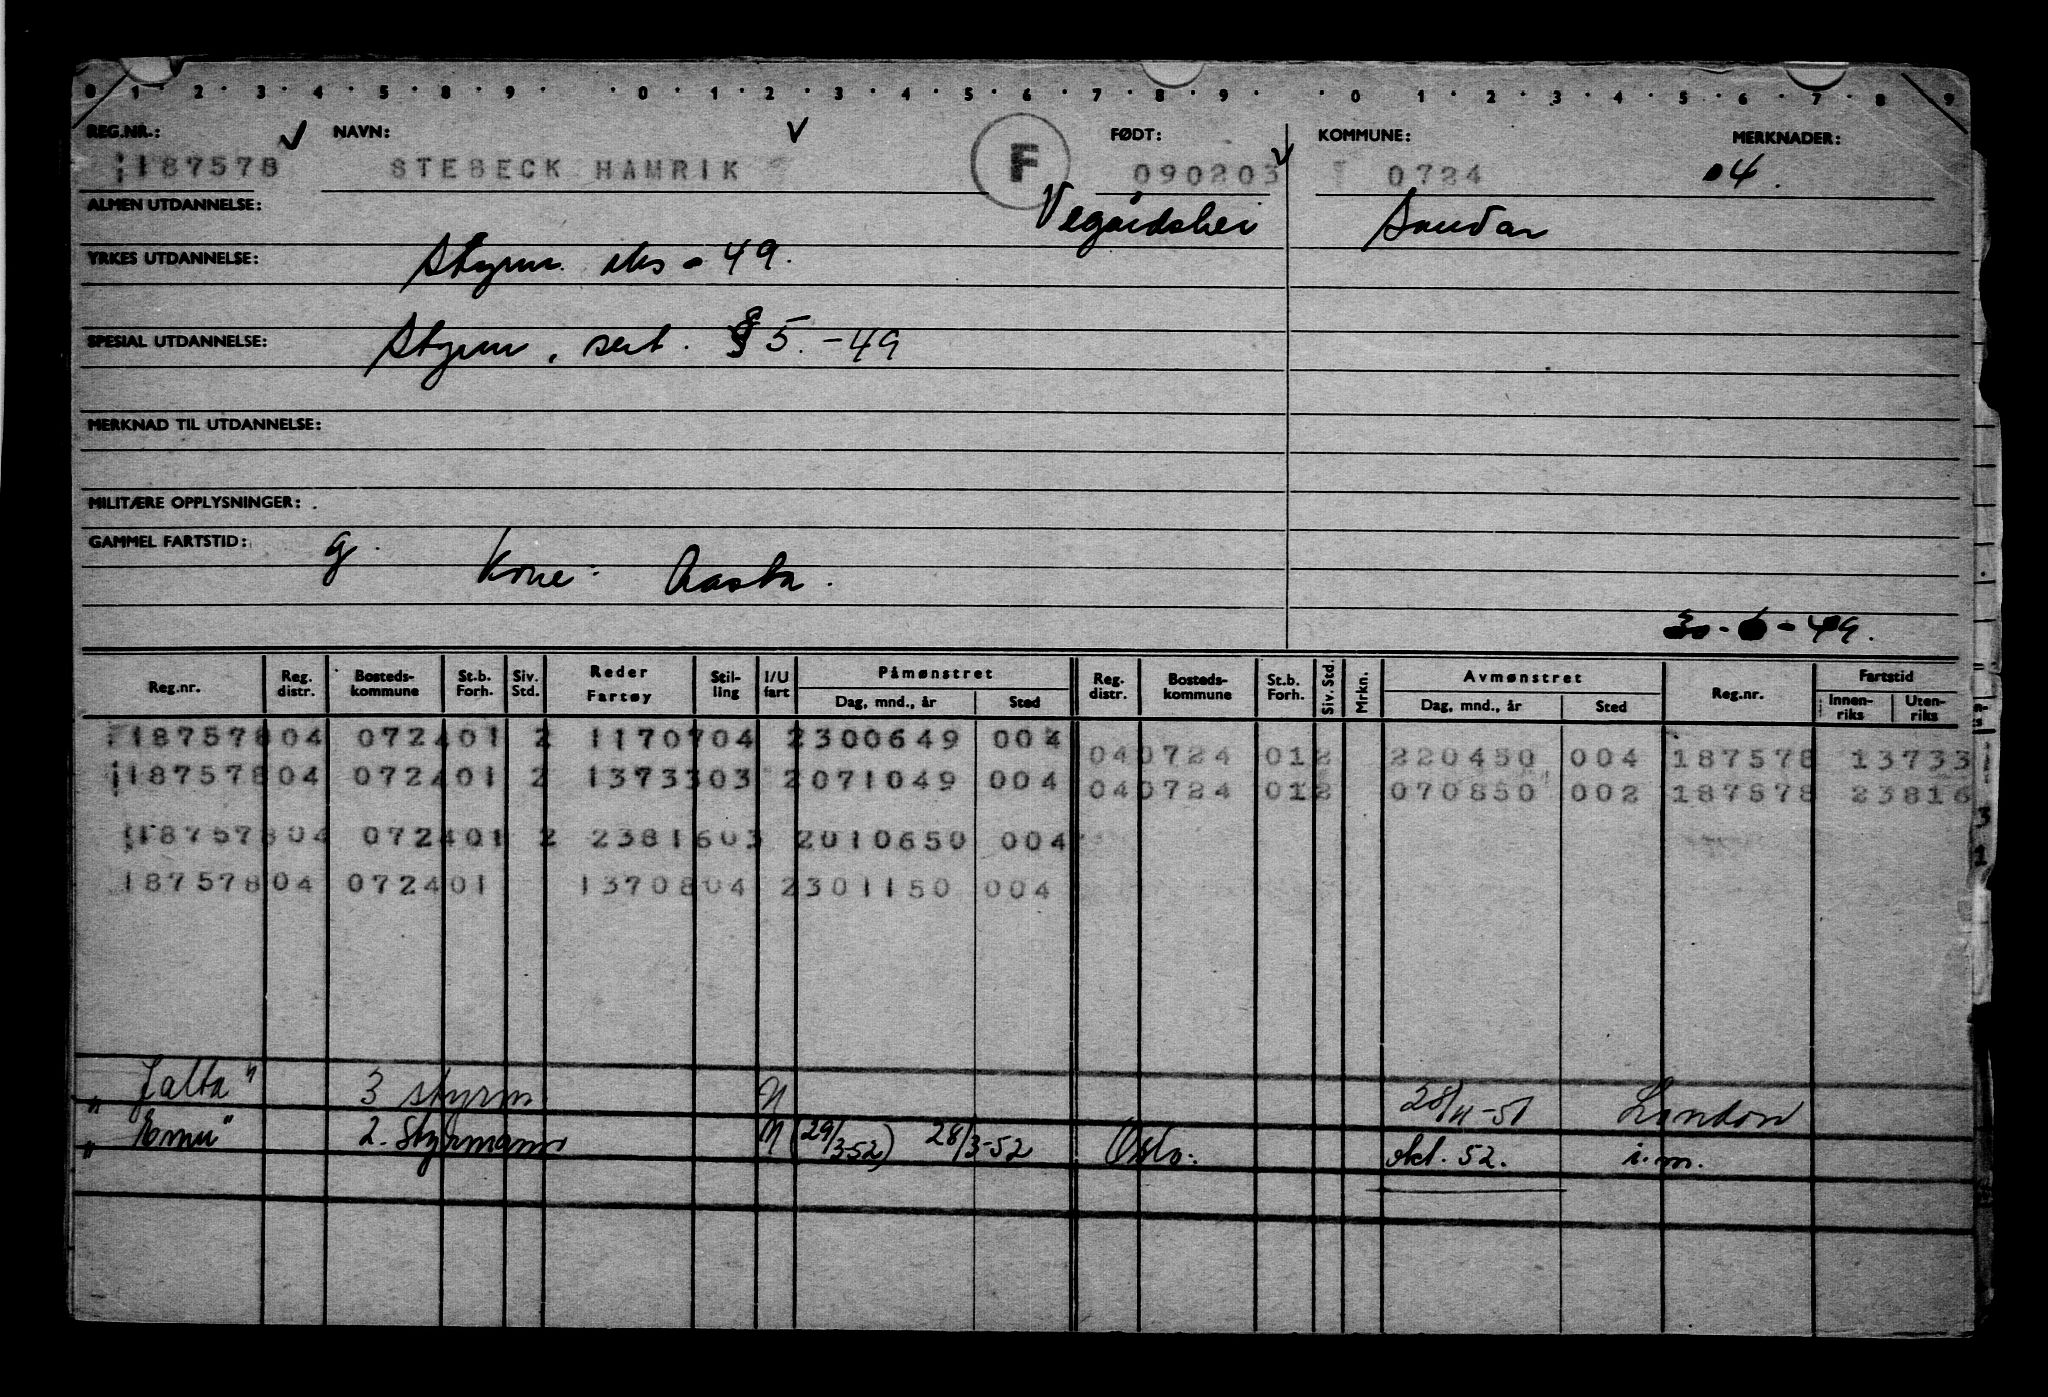 0 · 1 · 2 · 3 · 4 · 5 · 8 · 9 · · 0 · 1 · 2 · 3 · 4 · 5 · 6 · 7 · 8 · 9 · · 0 · 1 · 2 · 3 · 4 · 5 · 6 · 7 · 8 · 9
REG.NR.: NAVN: FØDT: KOMMUNE: MERKNADER:
187578 STEBECK HAMRIK F 090203 0724 04.
ALMEN UTDANNELSE: Vegårdshei Sandar
YRKES UTDANNELSE: Styrm. eks - 49.
SPESIAL UTDANNELSE: Styrm. sert. § 5. - 49
MERKNAD TIL UTDANNELSE:
MILITÆRE OPPLYSNINGER:
GAMMEL FARTSTID: g. Kone: Aasta.
30-6-49.
Reg.nr. Reg. distr. Bosteds-kommune St.b. Forh. Siv. Std. Reder Fartøy Stil-ling I/U fart Påmønstret Dag, mnd., år Sted Reg. distr. Bosteds-kommune St.b. Forh. Siv. Std. Mrkn. Avmønstret Dag, mnd., år Sted Reg.nr. Fartstid Innen-riks Uten-riks
18757804 072401 2 1170704 2300649 004 040724 012 220450 004 187578 13733
18757804 072401 2 1373303 2071049 004 040724 012 070850 002 187578 23816
18757804 072401 2 2381603 2010650 004
18757804 072401 1370804 2301150 004
"Jalta" 3 styrm U 28/11-51 London
"Emu" 2. Styrmann U (29/3 52) 28/3-52 Oslo. okt. 52. i.m.
3
1